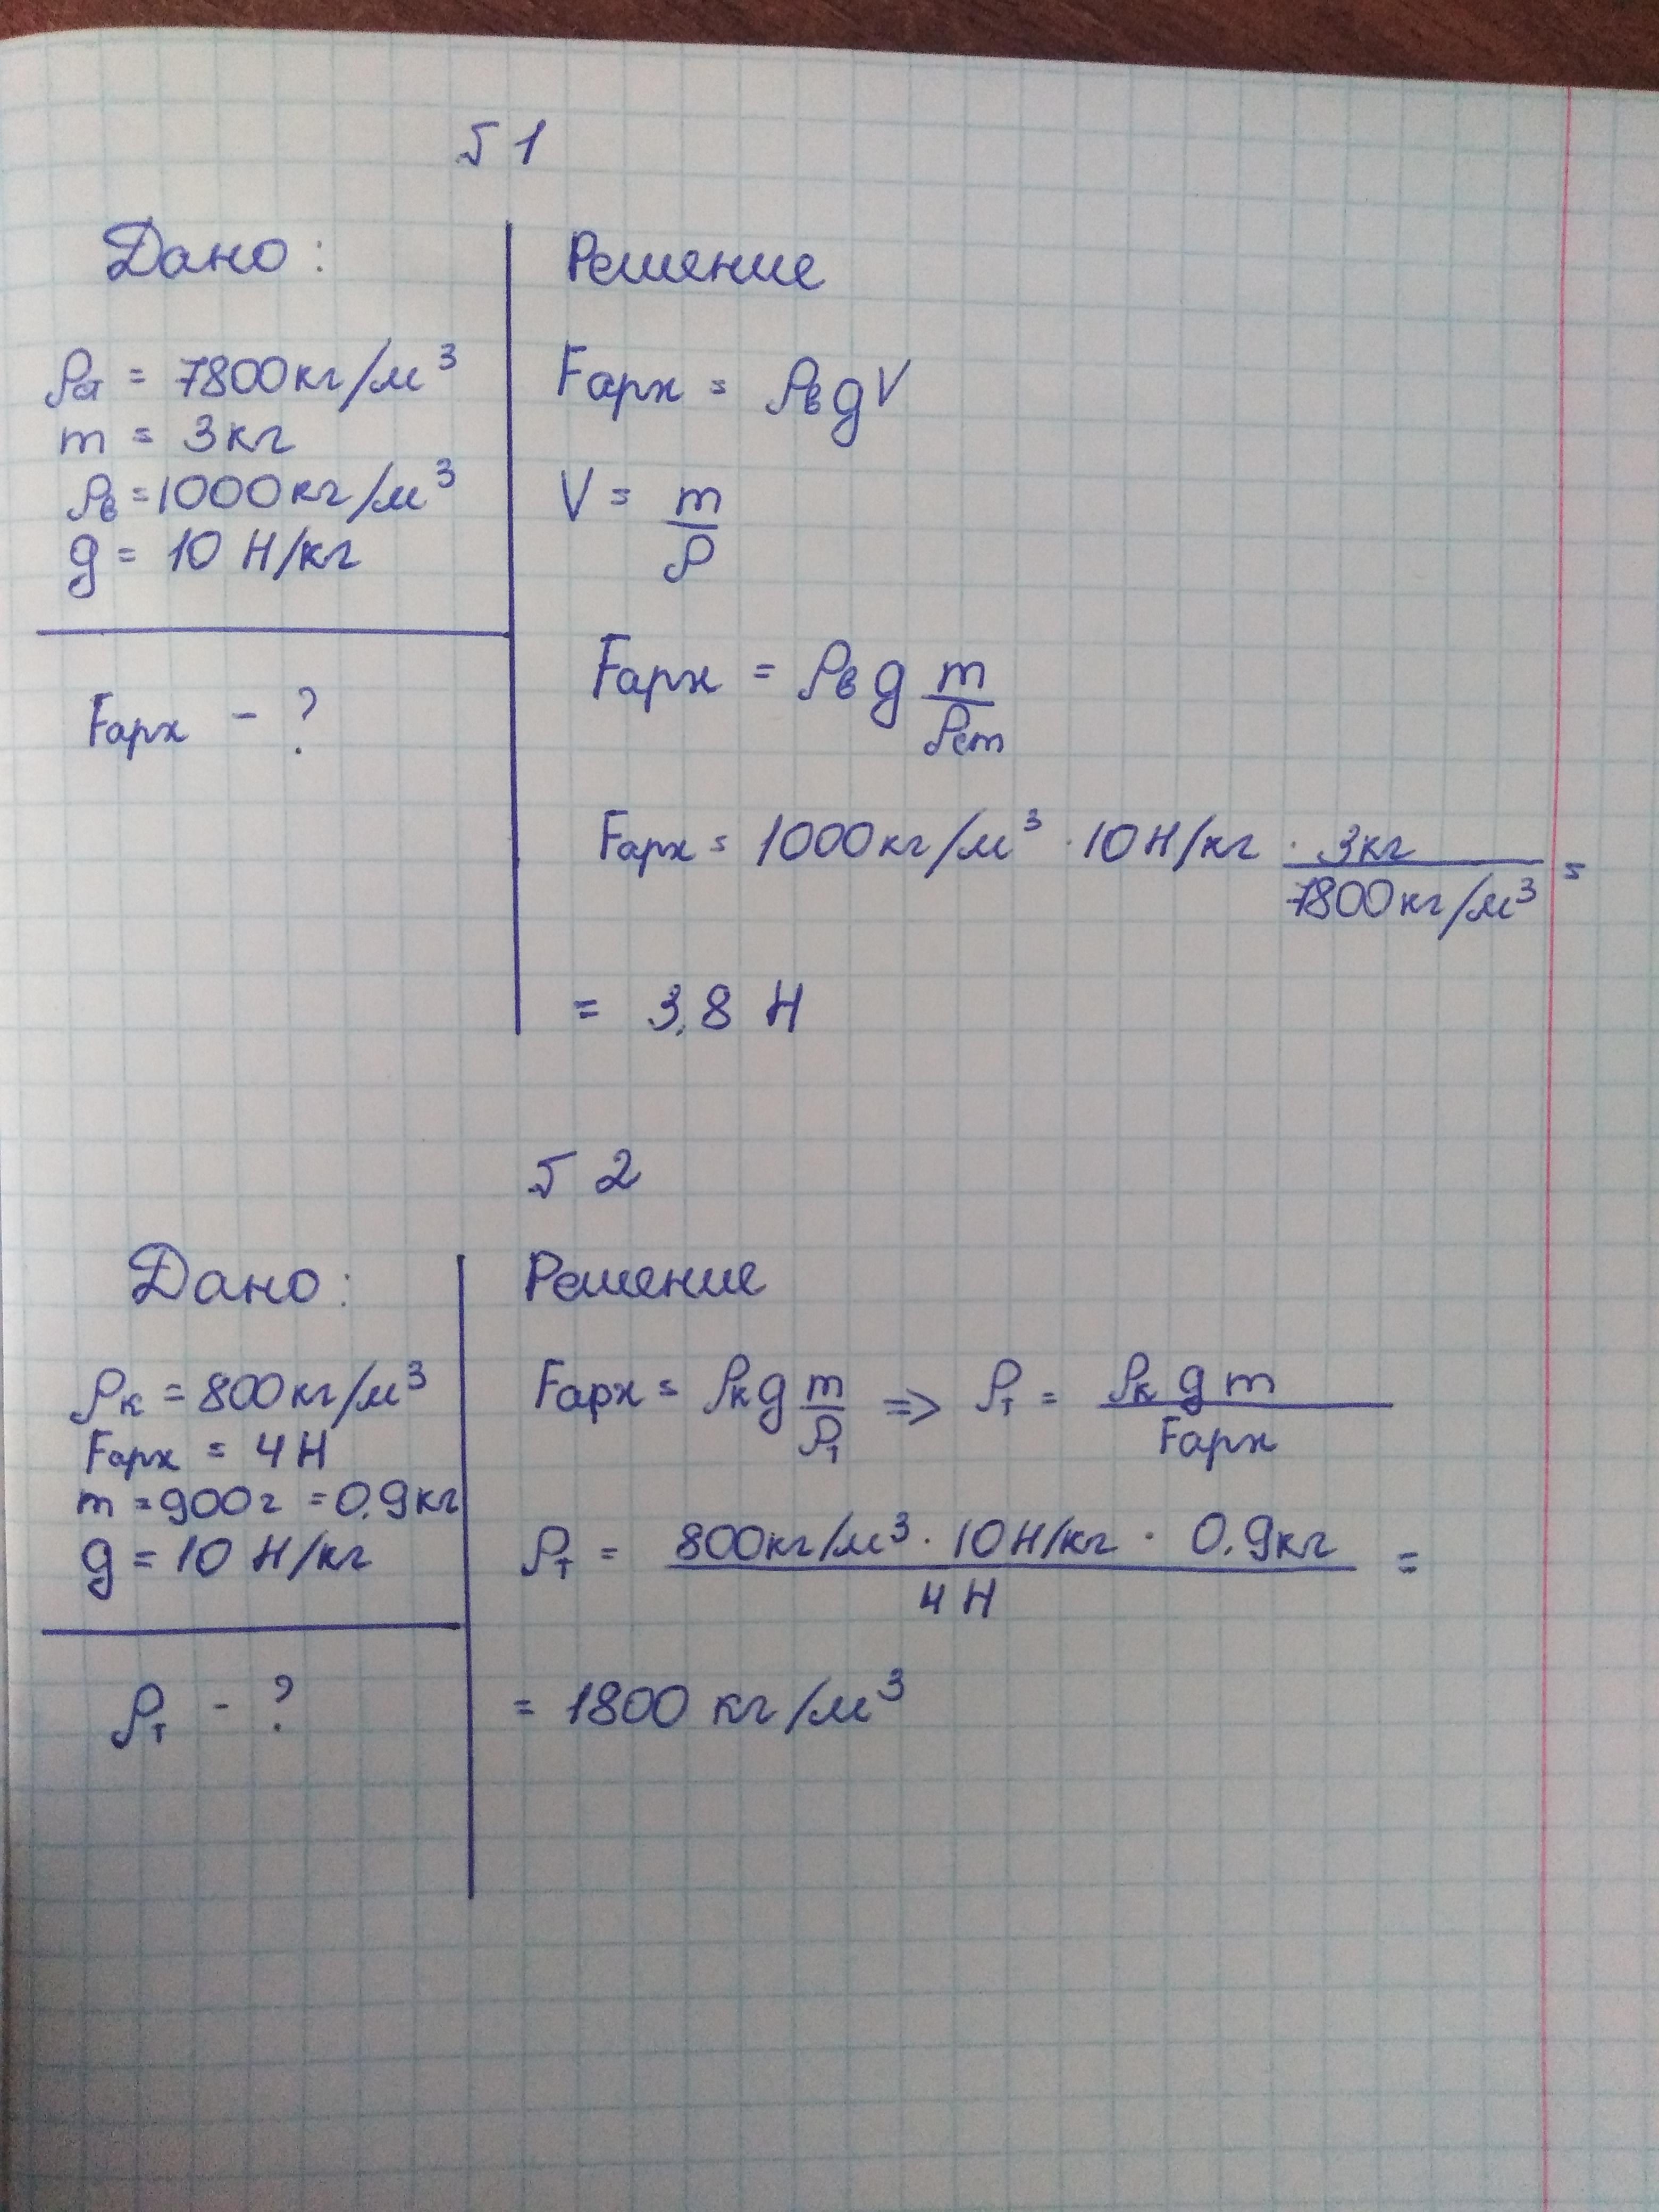 № 1
Дано:
ρст = 7800 кг/м³
m = 3 кг
ρв = 1000 кг/м³
g = 10 Н/кг
Fарх - ?
Решение
Fарх = ρв g V
V = m/ρ
Fарх = ρв g m/ρст
Fарх = 1000 кг/м³ · 10 Н/кг · 3 кг/7800 кг/м³ =
= 3,8 Н
№ 2
Дано:
ρк = 800 кг/м³
Fарх = 4 Н
m = 900 г = 0,9 кг
g = 10 Н/кг
ρт - ?
Решение
Fарх = ρк g m/ρт => ρт = ρк g m/Fарх
ρт = 800 кг/м³ · 10 Н/кг · 0,9 кг/4 Н =
= 1800 кг/м³